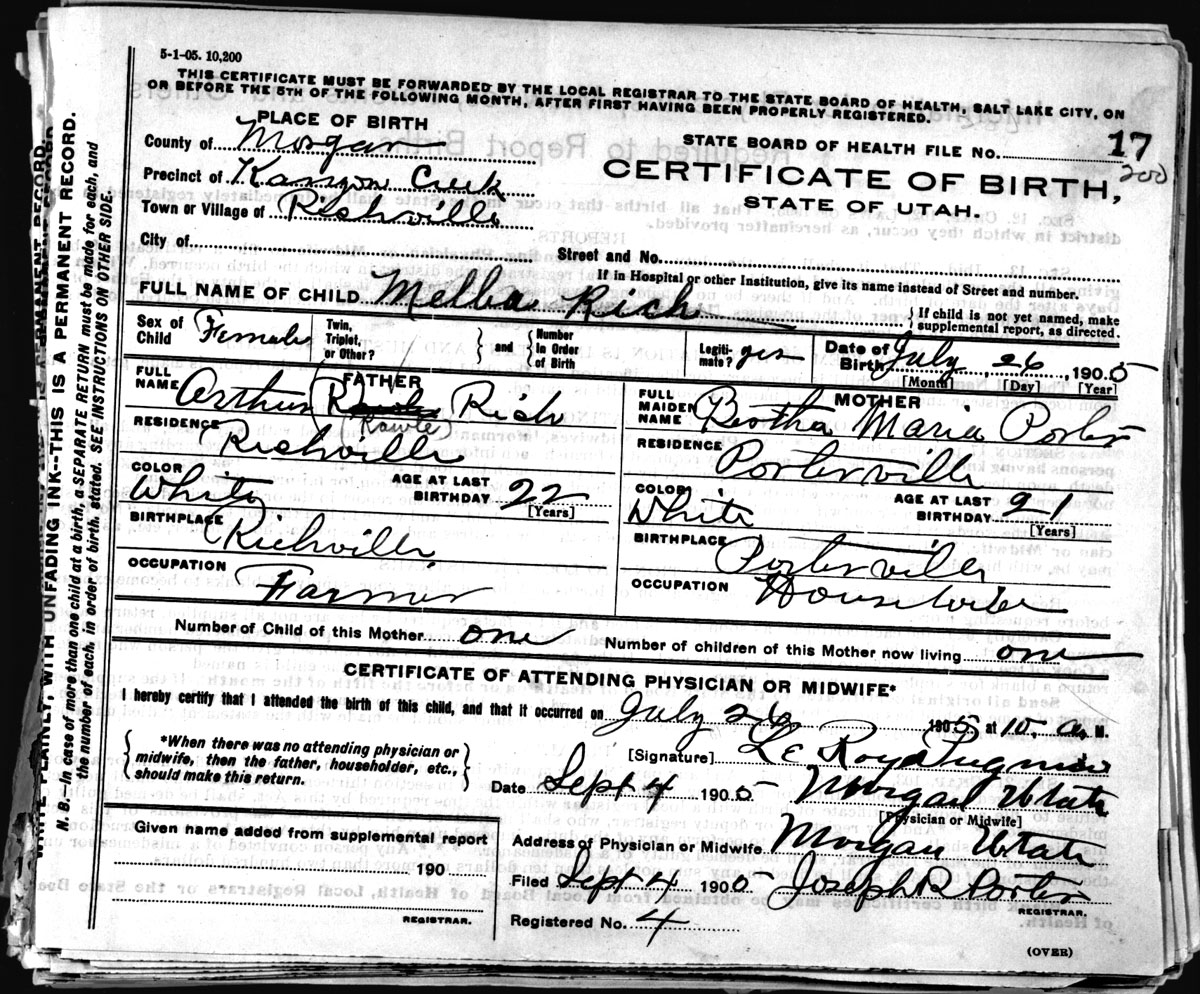 5-1-05. 10,200
THIS CERTIFICATE MUST BE FORWARDED BY THE LOCAL REGISTRAR TO THE STATE BOARD OF HEALTH, SALT LAKE CITY, ON
OR BEFORE THE 5TH OF THE FOLLOWING MONTH, AFTER FIRST HAVING BEEN PROPERLY REGISTERED.
PLACE OF BIRTH
County of Morgan
Precinct of Creek
Town or Village of Richville
City of
STATE BOARD OF HEALTH FILE No. 17
200
CERTIFICATE OF BIRTH,
STATE OF UTAH.
Street and No.
If in Hospital or other Institution, give its name instead of Street and number.
FULL NAME OF CHILD Melba Rich
If child is not yet named, make
supplemental report, as directed.
Sex of Child Female
Twin, Triplet, or Other?
and
Number in Order of Birth
Legitimate? yes
Date of Birth July 26 1905
[Month] [Day] [Year]
FATHER
FULL NAME Arthur Rich
(Rawle)
RESIDENCE Richville
COLOR White
AGE AT LAST BIRTHDAY 22
[Years]
BIRTHPLACE Richville
OCCUPATION Farmer
MOTHER
FULL MAIDEN NAME Bertha Maria Porter
RESIDENCE Porterville
COLOR White
AGE AT LAST BIRTHDAY 21
[Years]
BIRTHPLACE Porterville
OCCUPATION Housewife
Number of Child of this Mother one
Number of children of this Mother now living one
CERTIFICATE OF ATTENDING PHYSICIAN OR MIDWIFE*
I hereby certify that I attended the birth of this child, and that it occurred on July 26 1905, at 10. a. M.
*When there was no attending physician or
midwife, then the father, householder, etc.,
should make this return.
[Signature] Le Roy Pugmire
Date Sept 4 1905 Morgan Utah
[Physician or Midwife]
Address of Physician or Midwife Morgan Utah
Filed Sept 4 1905 Joseph R Porter
REGISTRAR.
Registered No. 4
Given name added from supplemental report
190
REGISTRAR.
(OVER)
WRITE PLAINLY, WITH UNFADING INK--THIS IS A PERMANENT RECORD.
N. B.--In case of more than one child at a birth, a SEPARATE RETURN must be made for each, and
the number of each, in order of birth, stated. SEE INSTRUCTIONS ON OTHER SIDE.